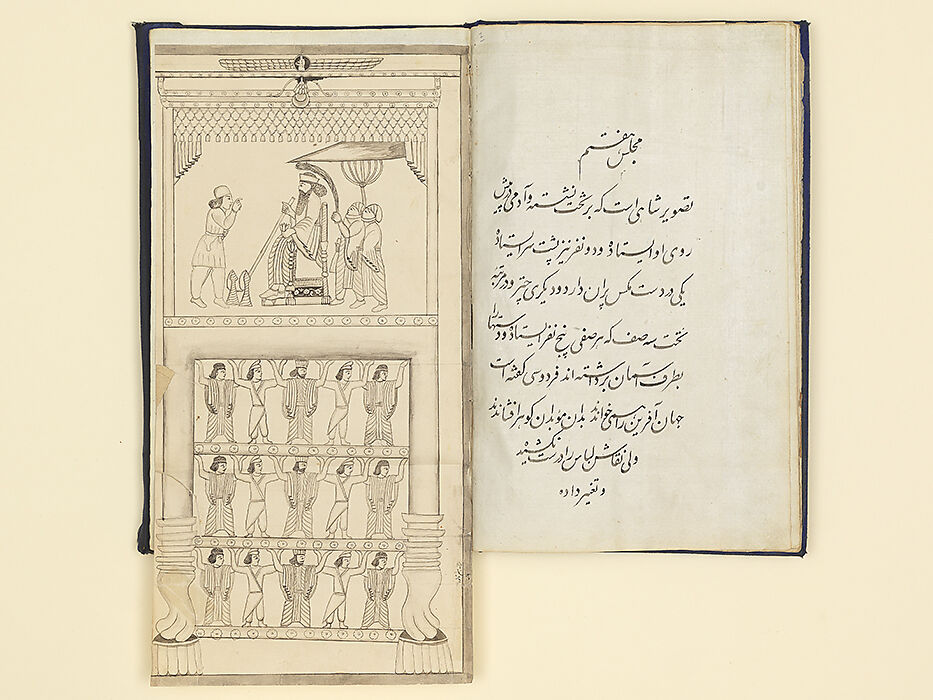 مجلس هفتم
تصویر شاهی است که بر تخت نشسته و آدمی در پیش
روی او ایستاده و دو نفر نیز پشت سر ایستاده
یکی در دست مگس پران دارد و دیگری چتر و در مرتبه
تخت سه صف که هر صفی پنج نفر ایستاده و دستها را
بطرف آسمان برداشته اند فردوسی گفته است
جهان آفرین را همی خواندند بدان موبدان گوهر افشاندند
ولی نقاش لباس را درست نکشیده
و تغییر داده